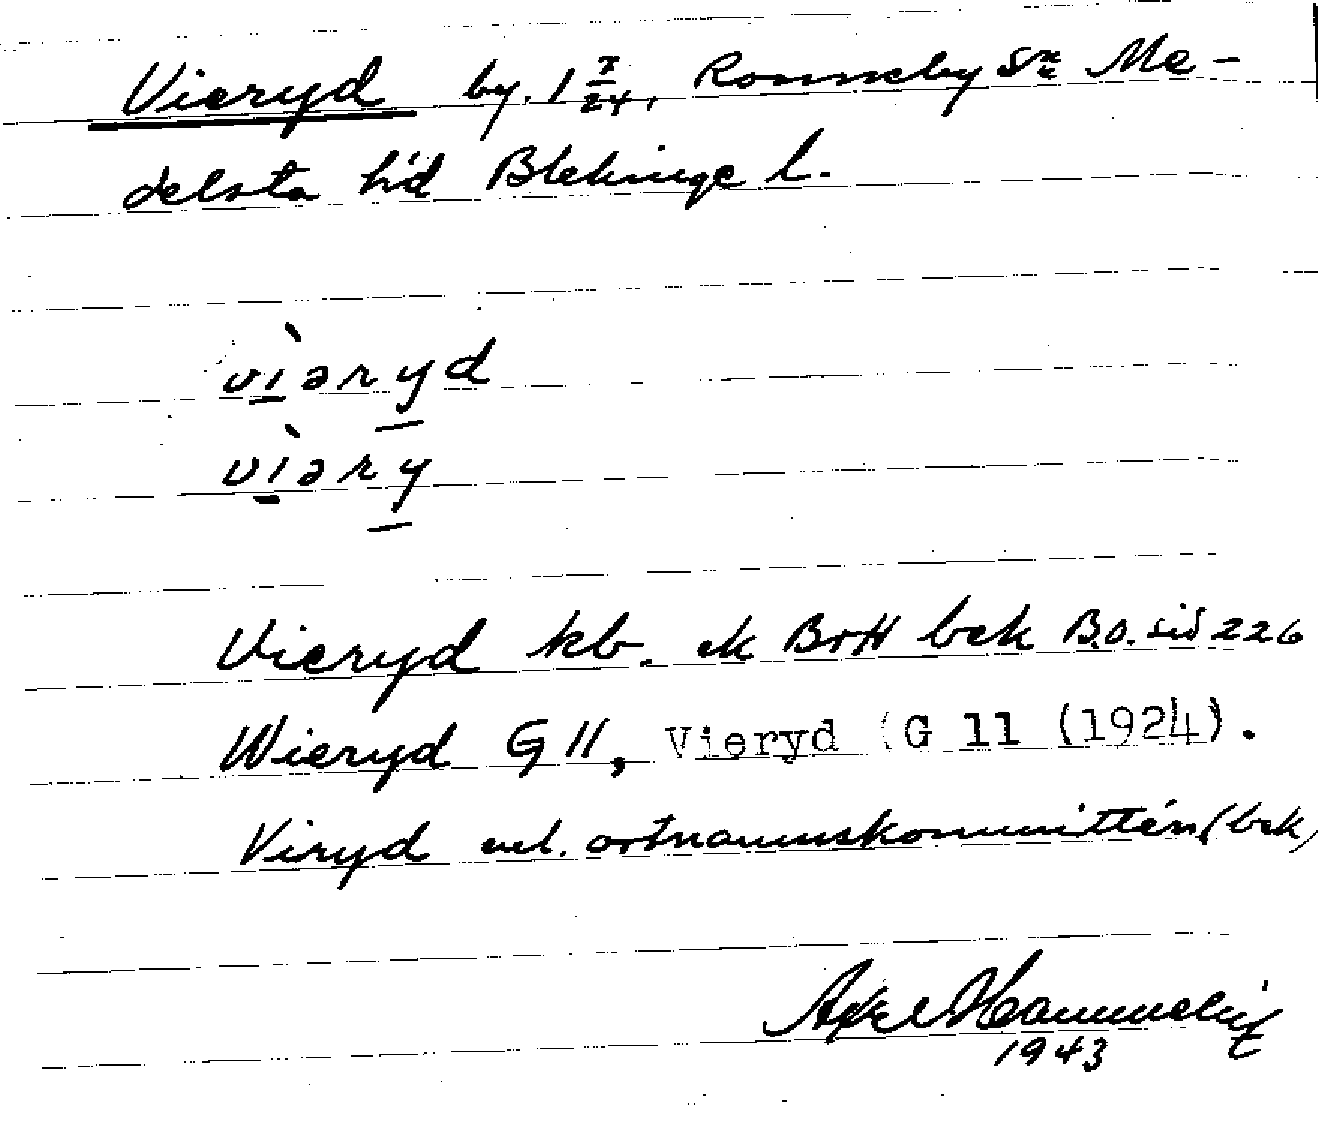 Vieryd by. 1 7/24, Ronneby sn Me-
delsta hd Blekinge l.
vìəryd
vìəry
Vieryd kb. ek BrH bek B.O. sid 226
Wieryd G 11, Vieryd (G 11 (1924).
Viryd enl. ortnamnskommittén (bek)
Axel
1943